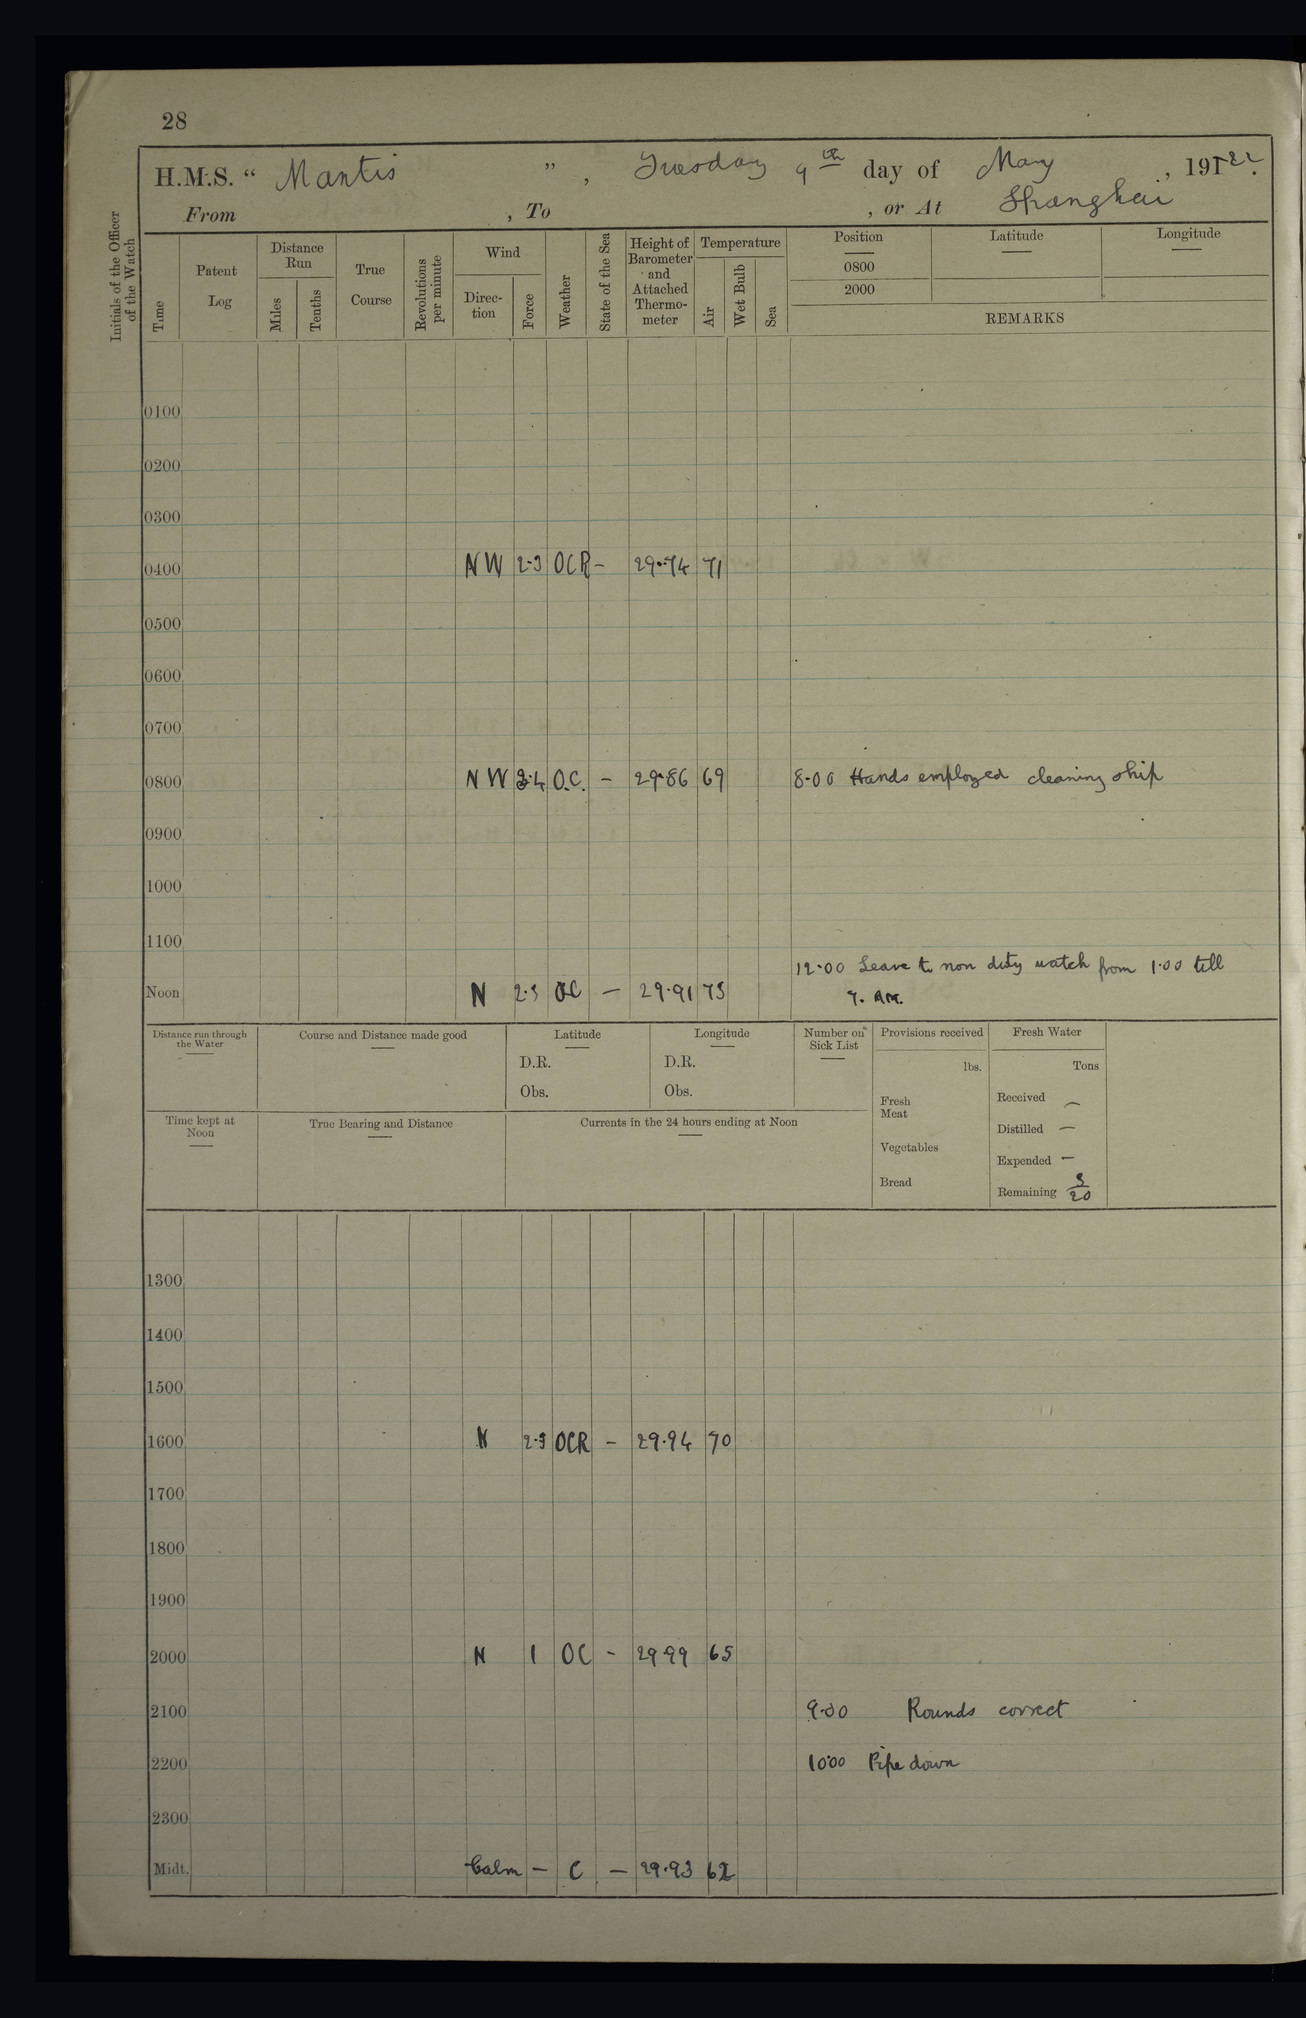 28
H.M.S. “ Mantis ” , Tuesday 9th day of May , 1922.
From , To , or At Shanghai
Initials of the Officer of the Watch
Time
Patent Log
Distance Run
Miles
Tenths
True Course
Revolutions per minute
Wind
Direc-tion
Force
Weather
State of the Sea
Height of Barometer and Attached Thermo-meter
Temperature
Air
Wet Bulb
Sea
Position
0800
2000
Latitude
Longitude
REMARKS
0100
0200
0300
0400 NW 2·3 OCR - 29·74 71
0500
0600
0700
0800 NW 3·4 O.C. - 29·86 69 8·00 Hands employed cleaning ship
0900
1000
1100
12·00 Leave to non duty watch from 1·00 till
Noon N 2·3 OC - 29·91 73 7. AM.
Distance run through the Water
Course and Distance made good
Latitude
D.R.
Obs.
Longitude
D.R.
Obs.
Number on Sick List
Provisions received
lbs.
Fresh Meat
Vegetables
Bread
Fresh Water
Tons
Received —
Distilled —
Expended —
Remaining 3/20
Time kept at Noon
True Bearing and Distance
Currents in the 24 hours ending at Noon
1300
1400
1500
1600 N 2·3 OCR - 29·94 70
1700
1800
1900
2000 N 1 OC - 29 99 65
2100 9·00 Rounds correct
2200 10·00 Pipe down
2300
Midt. Calm - C - 29·93 62